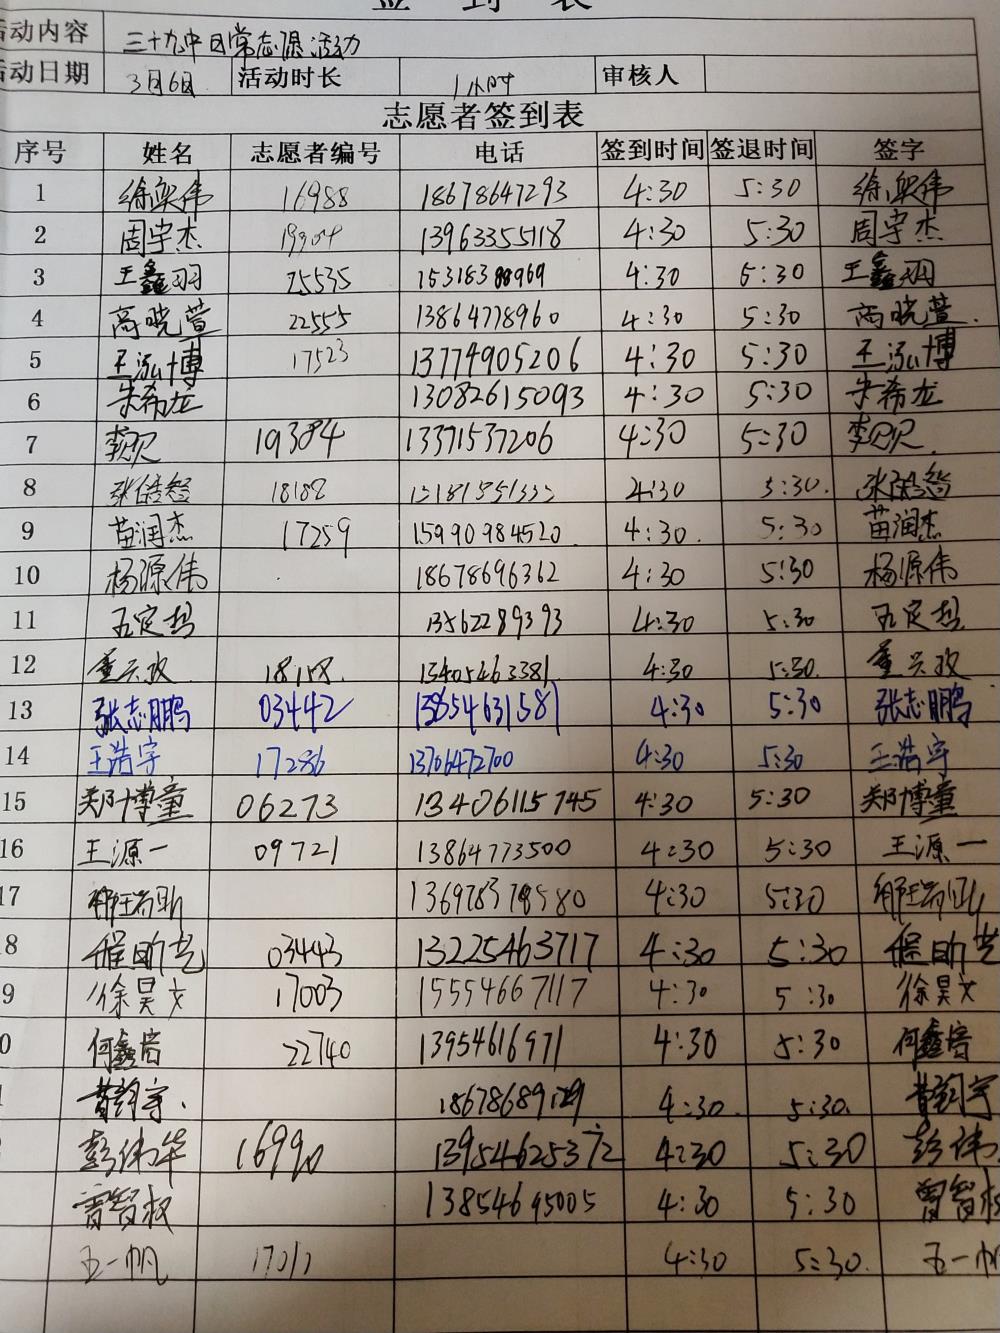 签到表
活动内容 三十九中日常志愿活动
活动日期 3月6日 活动时长 1小时 审核人
志愿者签到表
序号 姓名 志愿者编号 电话 签到时间 签退时间 签字
1 徐梁伟 16988 18678647293 4:30 5:30 徐梁伟
2 周宇杰 19904 13963355118 4:30 5:30 周宇杰
3 王鑫羽 25535 15318388969 4:30 5:30 王鑫羽
4 高晓萱 22555 13864778960 4:30 5:30 高晓萱.
5 王泓博 17523 13774905206 4:30 5:30 王泓博
6 朱希龙 13082615093 4:30 5:30 朱希龙
7 19384 13371537206 4:30 5:30
8 张皓智 18188 4:30 5:30. 张皓智
9 苗润杰 17259 15990984520. 4:30. 5:30 苗润杰
10 杨源伟 18678696362 4:30 5:30 杨源伟
11 13562289393 4:30 5:30
12 董兴孜 18158. 13405463381. 4:30 5:30. 董兴孜
13 张志鹏 03442 13854631581 4:30 5:30 张志鹏
14 王浩宇 17286 13706472700 4:30 5:30 王浩宇
15 郑博童 06273 13406115745 4:30 5:30 郑博童
16 王源一 09721 13864773500 4:30 5:30 王源一
17 136978378580 4:30 5:30
8 03443 13225463717 4:30 5:30
9 徐昊文 17003 15554667117 4:30 5:30 徐昊文
0 何鑫培 22740 13954616971 4:30 5:30 何鑫培
4:30. 5:30.
彭伟华 16990 13954625372 4:30 5:30 彭伟
曹智权 13854695005 4:30 5:30 曹智权
王一帆 17017 4:30 5:30. 王一帆